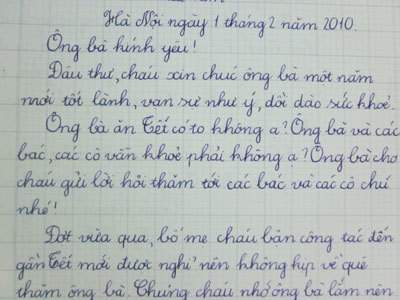 Hà Nội ngày 1 tháng 2 năm 2010.
Ông bà kính yêu!
Đầu thư, cháu xin chúc ông bà một năm
mới tốt lành, vạn sự như ý, dồi dào sức khoẻ.
Ông bà ăn Tết có to không ạ? Ông bà và các
bác, các cô vẫn khoẻ phải không ạ? Ông bà cho
cháu gửi lời hỏi thăm tới các bác và các cô chú
nhé!
Đợt vừa qua, bố mẹ cháu bận công tác đến
gần Tết mới được nghỉ nên không kịp về quê
thăm ông bà. Chúng cháu nhớ ông bà lắm nên